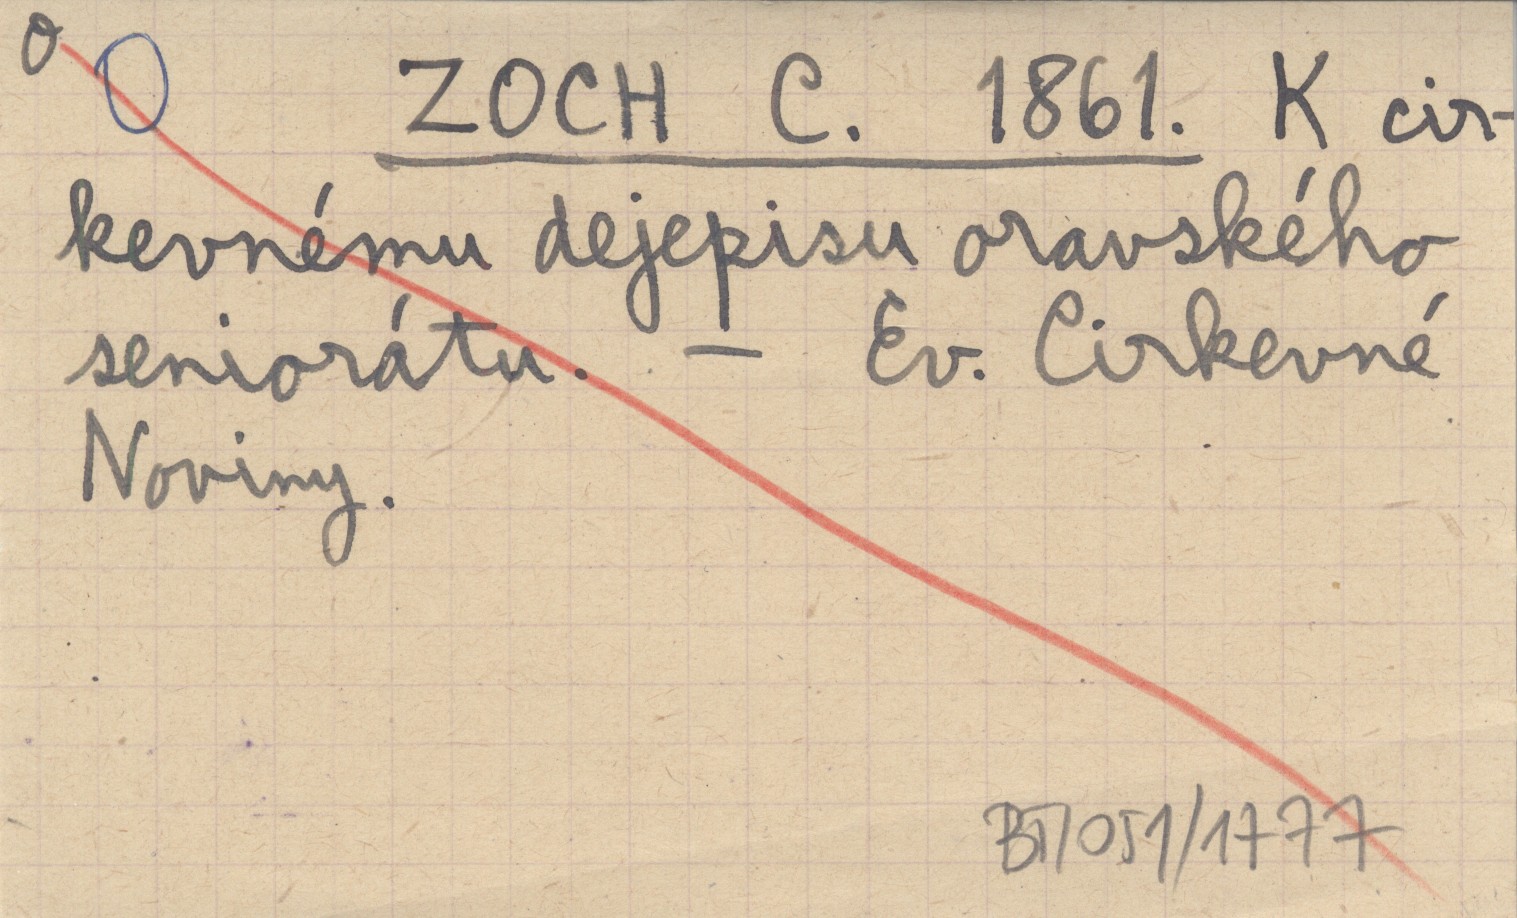 O
ZOCH C. 1861. K cir-
kevnému dejepisu oravského
seniorátu. — Ev. Cirkevné
Noviny.
BT/051/1777